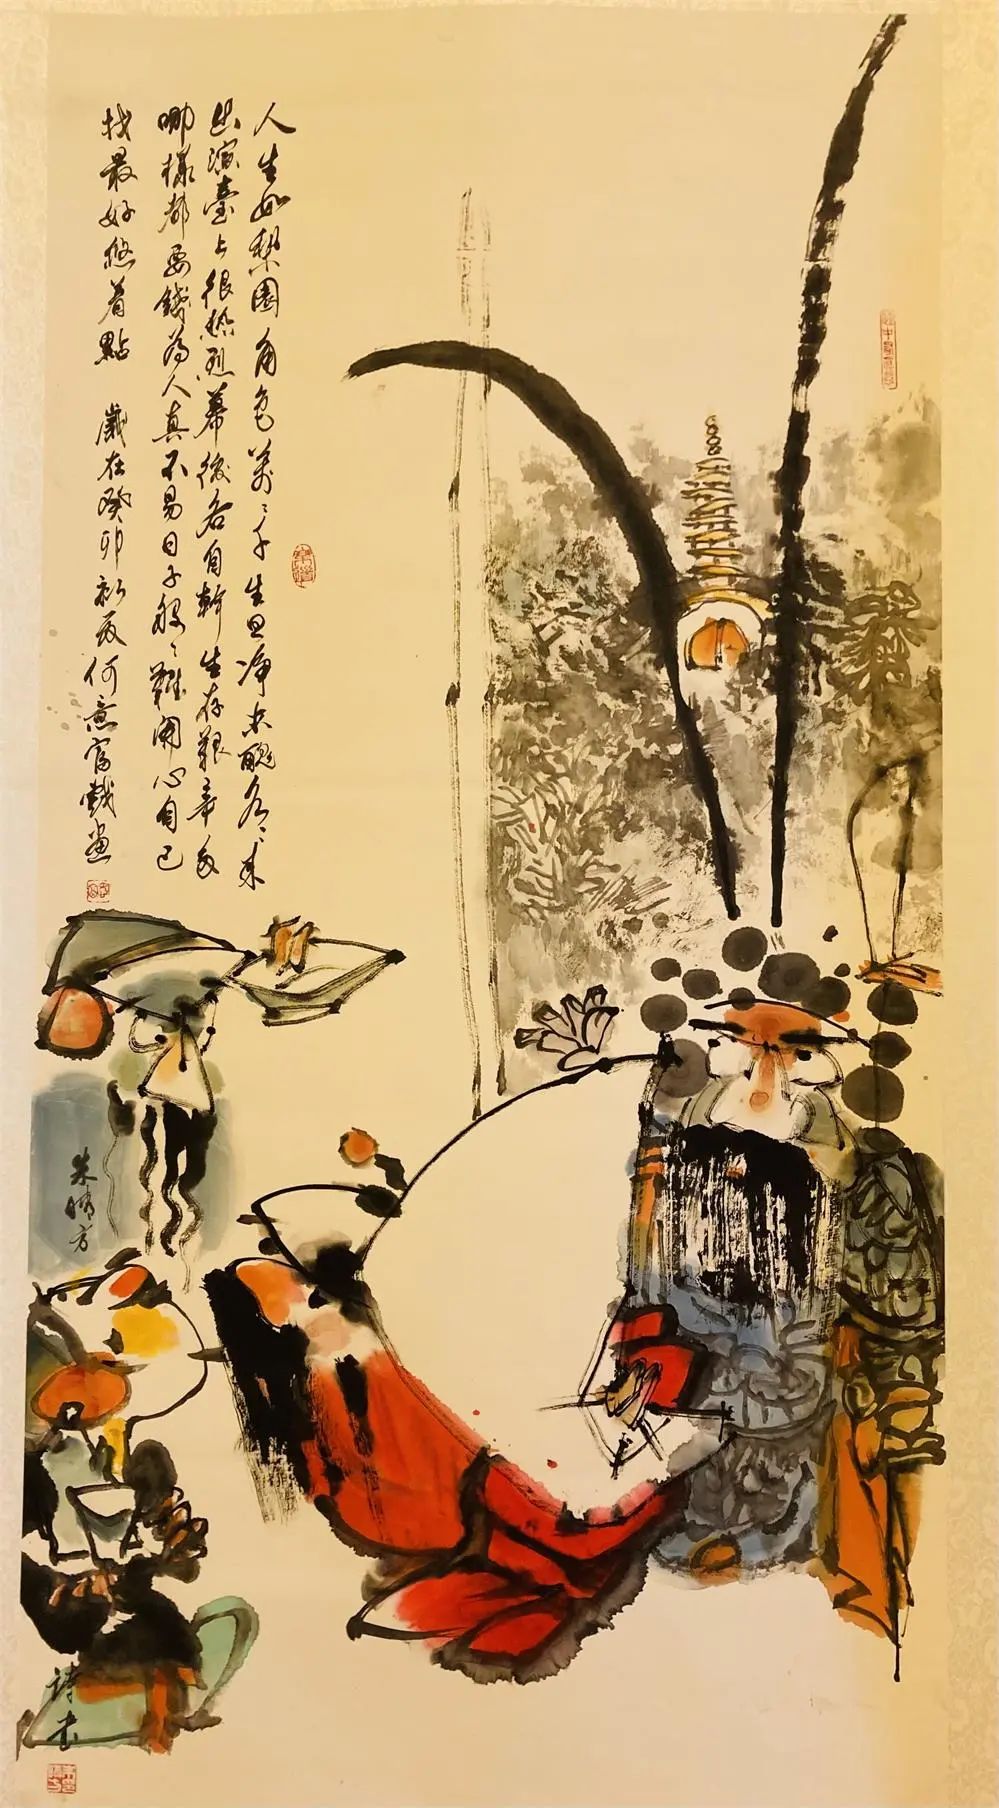 人生如梨園角色万々千生旦净末醜各々来
出演臺上很热烈幕後各自斬生存艱辛多
哪樣都要錢為人真不易日子般々難開心自己
找最好悠着點 歲在癸卯初夏何意富戲畫
朱晴方
詩书